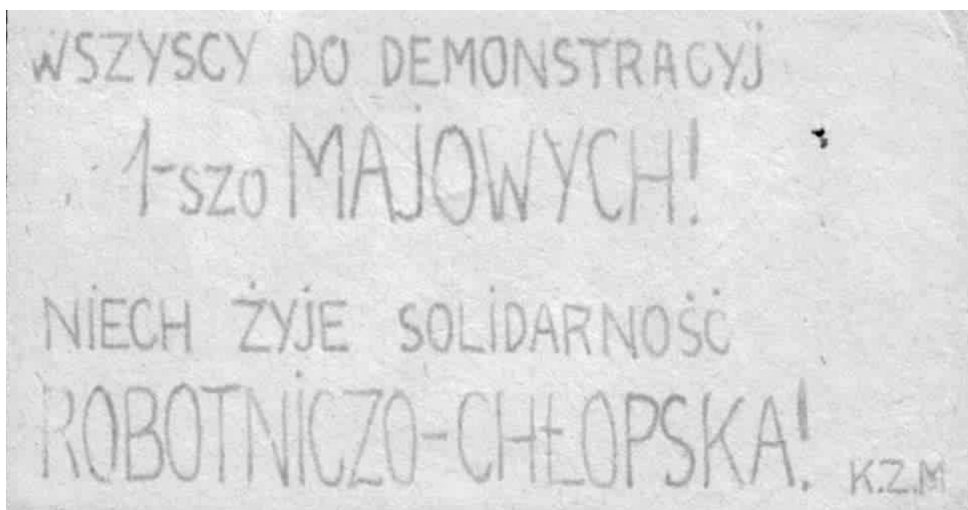 WSZYSCY DO DEMONSTRACYJ
1-szo MAJOWYCH!
NIECH ŻYJE SOLIDARNOŚĆ
ROBOTNICZO-CHŁOPSKA!
K.Z.M